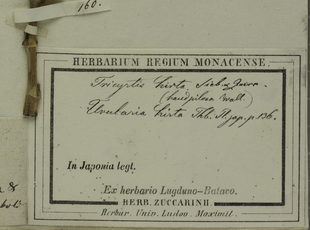 160.
HERBARIUM REGIUM MONACENSE.
Tricyrtis hirta Sieb. & Zucc.
Uvularia hirta Thb. fl. jap. p. 136.
In Japonia legt.
Ex herbario Lugduno-Batavo.
HERB. ZUCCARINII.
Herbar. Univ. Ludov. Maximil.